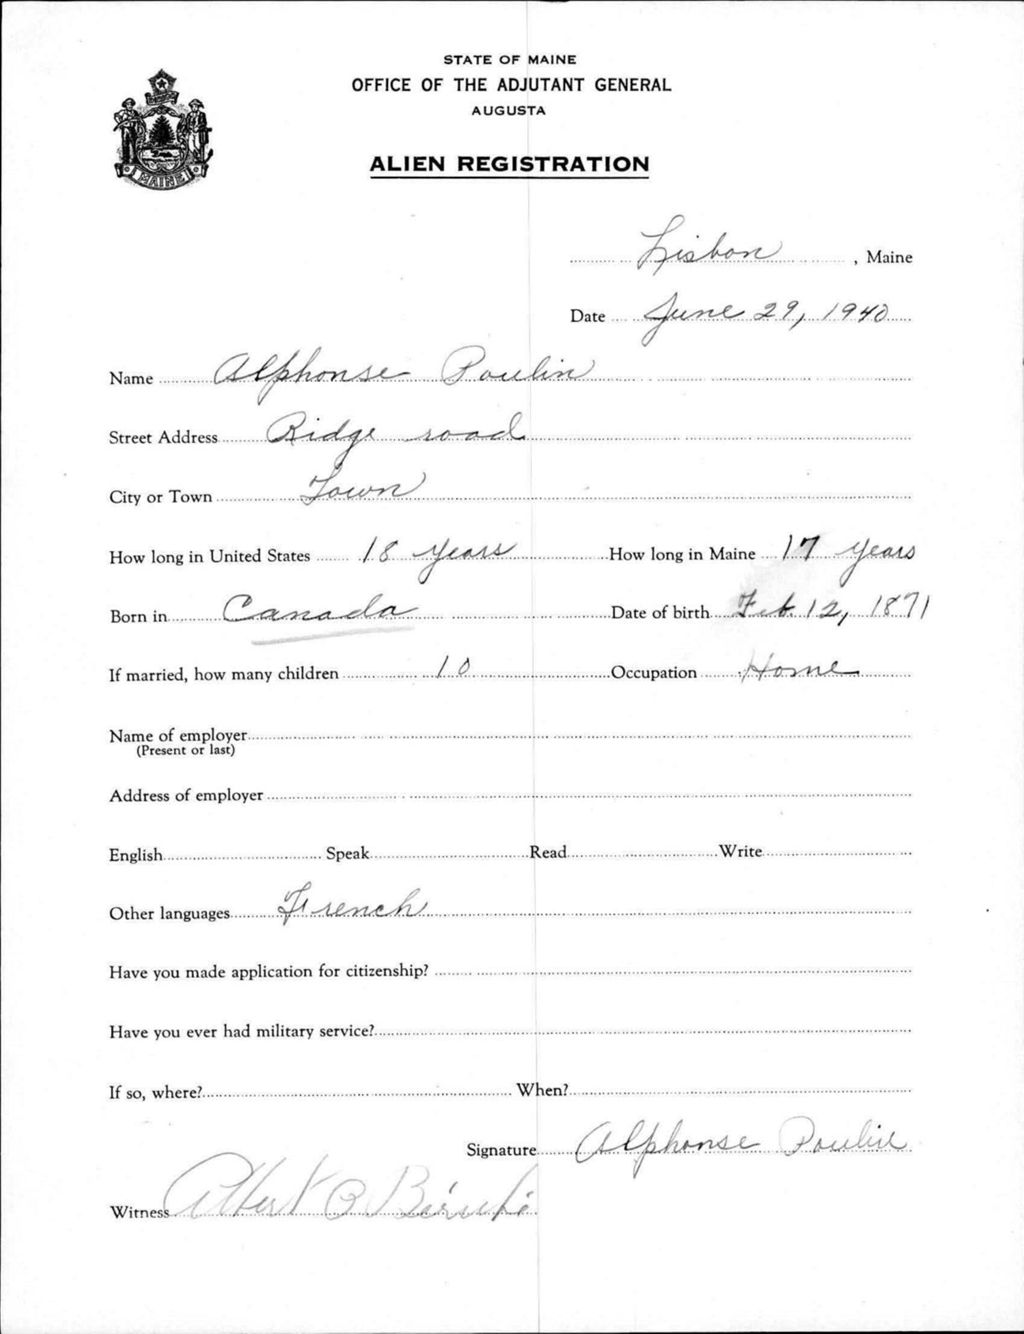 STATE OF MAINE
OFFICE OF THE ADJUTANT GENERAL
AUGUSTA
ALIEN REGISTRATION
MAINE
Lisbon, Maine
Date June 29, 1940
Name Alphonse Poulin
Street Address Ridge road
City or Town Town
How long in United States 18 years How long in Maine 17 years
Born in Canada Date of birth Feb. 12, 1871
If married, how many children 10 Occupation Home
Name of employer
(Present or last)
Address of employer
English Speak Read Write
Other languages French
Have you made application for citizenship?
Have you ever had military service?
If so, where? When?
Signature Alphonse Poulin
Witness Albert